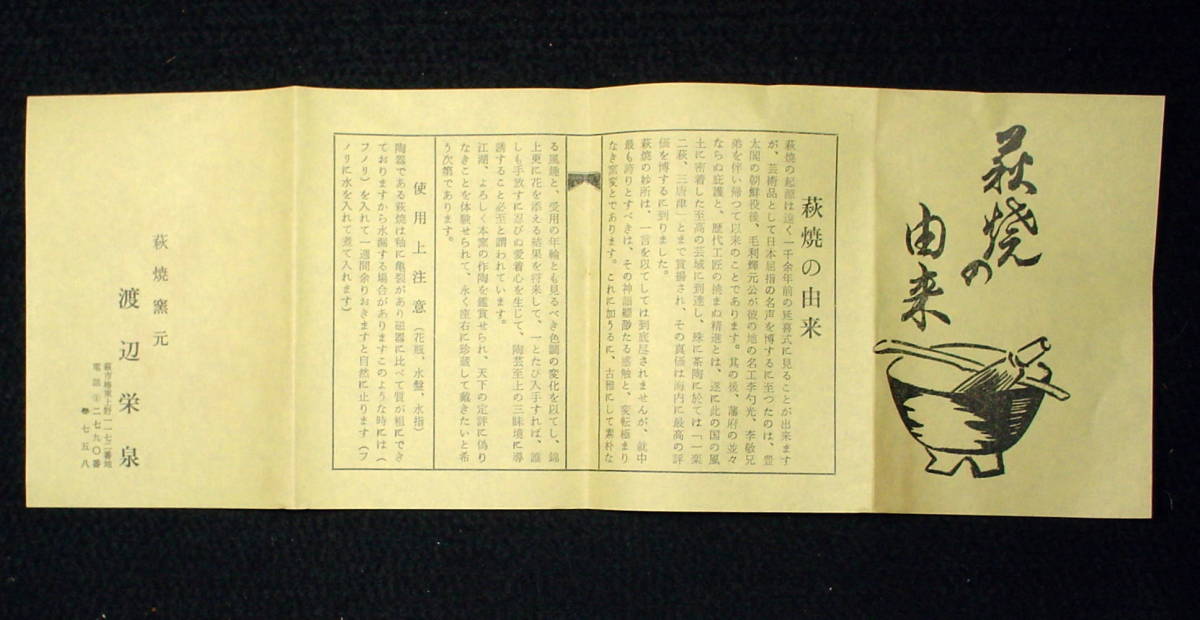 萩焼の
由来
萩焼の由来
萩焼の起源は遠く一千余年前の延喜式に見ることが出来ます
が、芸術品として日本屈指の名声を博するに至つたのは、豊
太閤の朝鮮役後、毛利輝元公が彼の地の名工李勺光、李敬兄
弟を伴い帰つて以来のことであります。其の後、藩府の並々
ならぬ庇護と、歴代工匠の撓まぬ精進とは、遂に此の国の風
土に密着した至高の芸域に到達し、殊に茶陶に於ては「一楽
二萩、三唐津」とまで賞揚され、その真価は海内に最高の評
価を博するに到りました。
萩焼の妙所は、一言を以てしては到底尽されませんが、就中
最も誇りとすべきは、その神韻縹渺たる感触と、変転極まり
なき窯変とであります。これに加うるに、古雅にして素朴な
る風趣と、受用の年輪とも見るべき色調の変化を以てし、錦
上更に花を添える結果を将来して、一とたび入手すれば、誰
しも手放すに忍びぬ愛着心を生じて、陶芸至上の三昧境に導
誘すること必至と謂われています。
江湖、よろしく本窯の作陶を鑑賞せられ、天下の定評に偽り
なきことを体験せられて、永く座右に珍蔵して戴きたいと希
う次第であります。
使用上注意(花瓶、水盤、水指)
陶器である萩焼は釉に亀裂があり磁器に比べて質が粗にでき
ておりますから水漏する場合がありますこのような時には(
フノリ)を入れて一週間余りおきますと自然に止ります(フ
ノリに水を入れて煮て入れます)
萩焼窯元
渡辺栄泉
萩市椿東上野一一七二番地
電話②二七九〇番
七五八